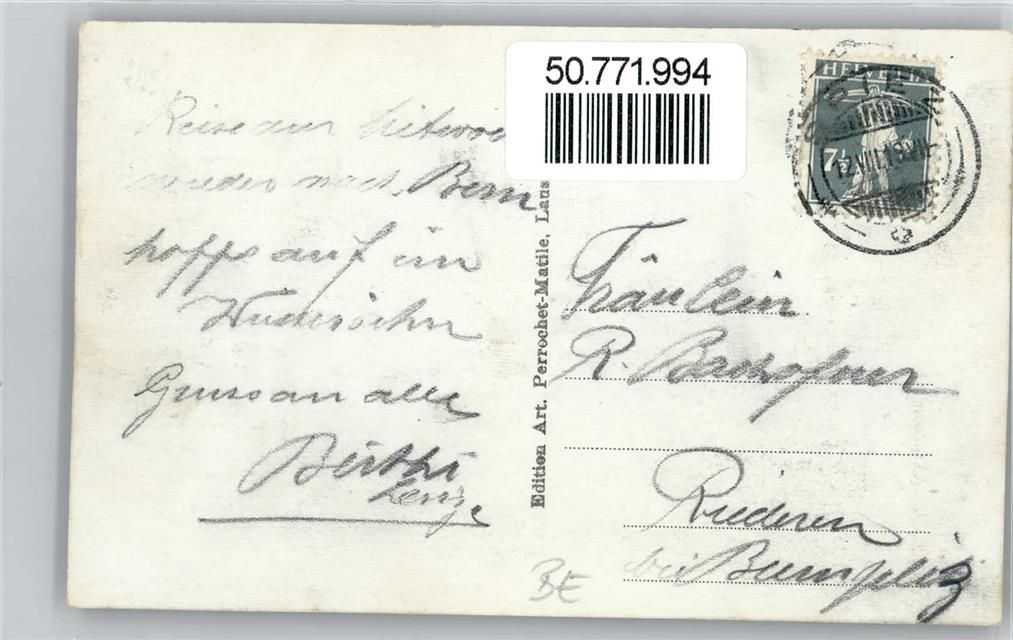 50.771.994
HELVETIA
7½
Reise am Mitwoch
wieder nach Bern
hoffe auf ein
Wiedersehn
Gruss an alle
Berthi
Edition Art. Perrochet-Matile, Laus
Fräulein
R. Bachofner
Riederen
bei Bumpliz
BE